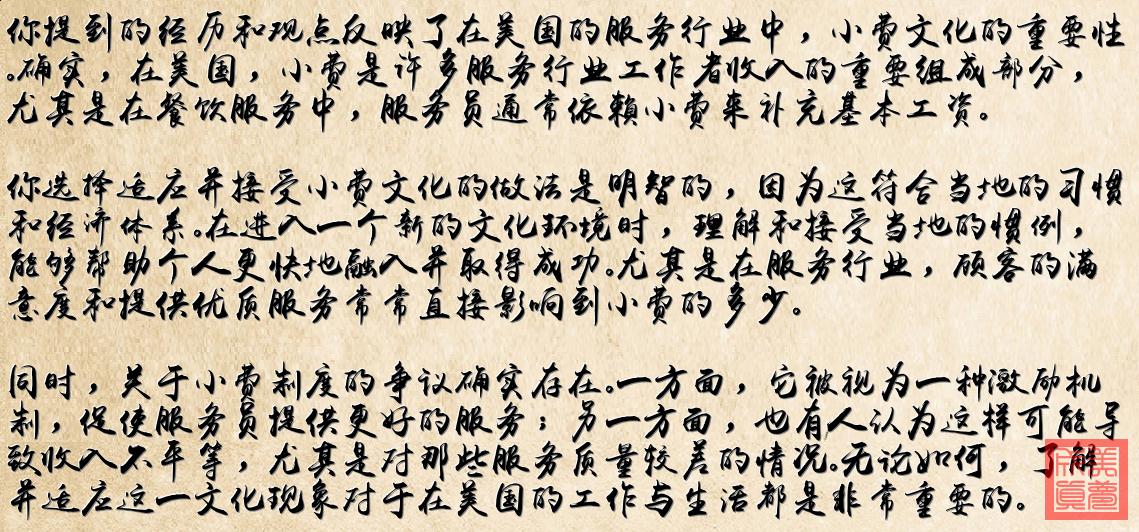 你提到的经历和观点反映了在美国的服务行业中，小费文化的重要性
。确实，在美国，小费是许多服务行业工作者收入的重要组成部分，
尤其是在餐饮服务中，服务员通常依赖小费来补充基本工资。
你选择适应并接受小费文化的做法是明智的，因为这符合当地的习惯
和经济体系。在进入一个新的文化环境时，理解和接受当地的惯例，
能够帮助个人更快地融入并取得成功。尤其是在服务行业，顾客的满
意度和提供优质服务常常直接影响到小费的多少。
同时，关于小费制度的争议确实存在。一方面，它被视为一种激励机
制，促使服务员提供更好的服务；另一方面，也有人认为这样可能导
致收入不平等，尤其是对那些服务质量较差的情况。无论如何，了解
并适应这一文化现象对于在美国的工作与生活都是非常重要的。